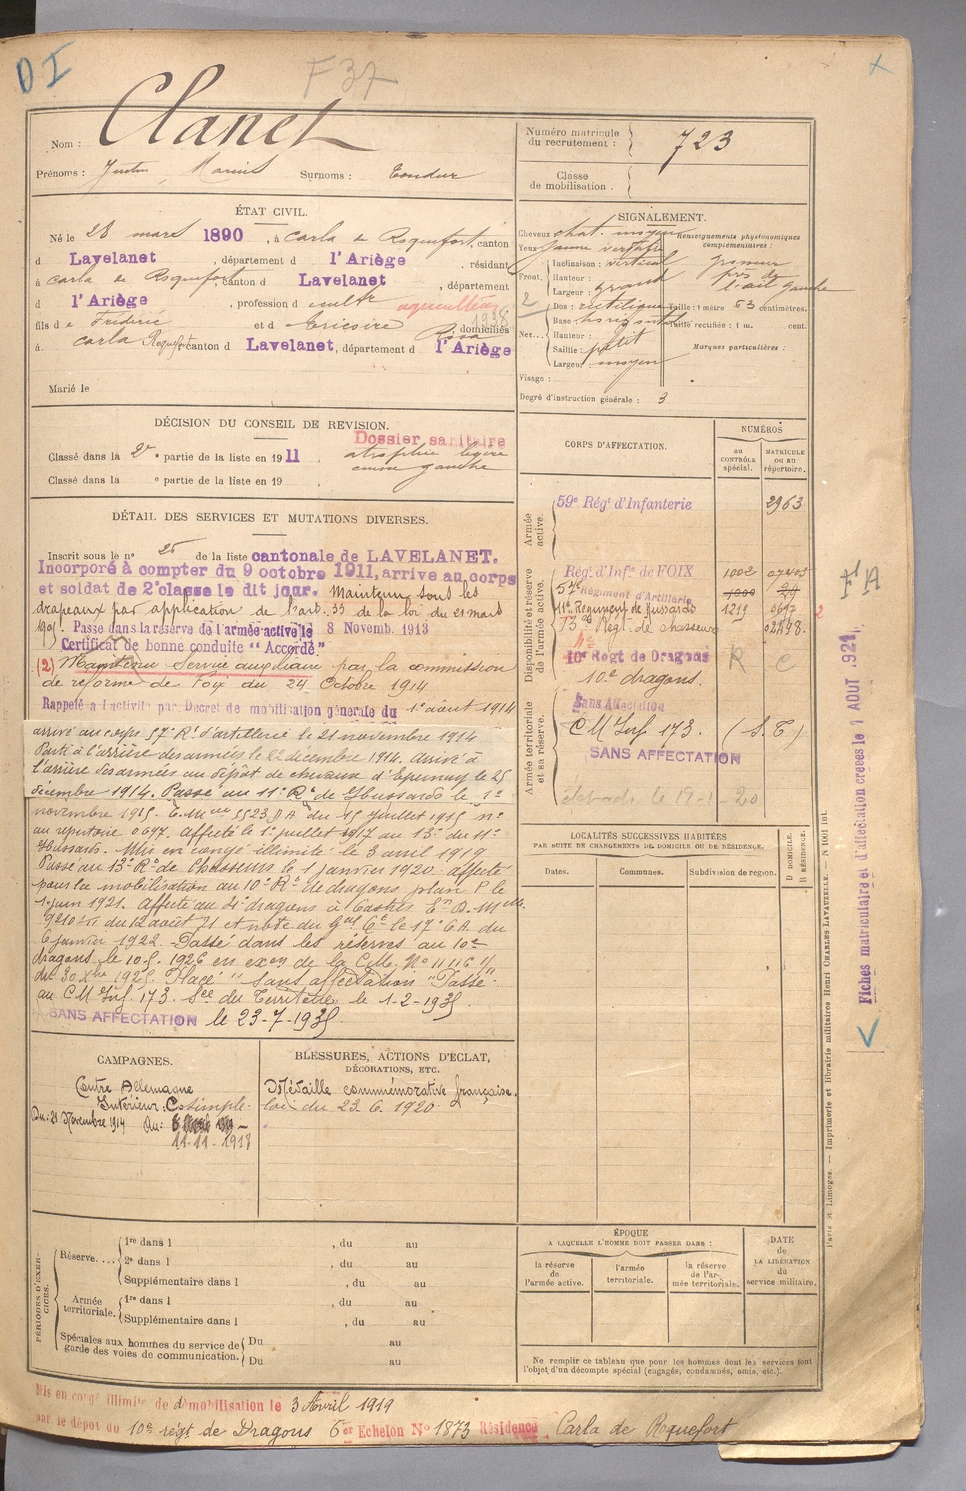 D I
F 37
Clanet
Nom :
Prénoms : Justin, Marius Surnoms : Toudur
Numéro matricule du recrutement : 723
Classe de mobilisation :
ÉTAT CIVIL.
Né le 28 mars 1890, à Carla de Roquefort, canton
d Lavelanet, département d l'Ariège, résidant
à Carla de Roquefort, canton d Lavelanet, département
d l'Ariège, profession d cultr agriculteur
1938
fils de Frédéric et d domiciliés
à Carla Roquefort, canton d Lavelanet, département d l'Ariège
Marié le
SIGNALEMENT.
Cheveux chat. moyen
Yeux jaune verdâtre
Renseignements physionomiques complémentaires :
Front. Inclinaison : vertical
Hauteur :
Largeur : grand
près de l'œil gauche
2
Nez Dos : rectiligne
Base : horizontal
Hauteur :
Saillie : petit
Largeur : moyen
Taille : 1 mètre 63 centimètres.
Taille rectifiée : 1 m. cent.
Marques particulières :
Visage :
Degré d'instruction générale : 3
DÉCISION DU CONSEIL DE REVISION.
Classé dans la 2e partie de la liste en 1911
Classé dans la e partie de la liste en 19
Dossier sanitaire
atrophie légère
gauche
DÉTAIL DES SERVICES ET MUTATIONS DIVERSES.
Inscrit sous le n° 25 de la liste cantonale de LAVELANET.
Incorporé à compter du 9 octobre 1911, arrive au corps
et soldat de 2e classe le dit jour. Maintenu sous les
drapeaux par application de l'art. 33 de la loi du 21 mars
1905. Passé dans la réserve de l'armée active le 8 Novemb. 1913
Certificat de bonne conduite "Accordé."
(2) Maintenu Service auxiliaire par la commission
de réforme de Foix du 24 Octobre 1914
Rappelé à l'activité par Décret de mobilisation générale du 1e août 1914
arrivé au corps 57e Rt d'artillerie le 21 novembre 1914
Parti à l'arrière des armées le 22 décembre 1914. Arrivé à
l'arrière des armées au dépôt de chevaux d'Epernay le 25
décembre 1914. Passé au 11e Rt de Hussards le 1er
novembre 1915. 5523 DA du 15 juillet 1915 n°
au répertoire 0697. Affecté le 1er juillet 1917 au 13e du 11e
Hussards. Mis en congé illimité le 3 avril 1919
Passé au 13e Rt de Chasseurs le 1 janvier 1920. affecté
pour la mobilisation au 10e Rt de dragons plan P le
1er juin 1921. Affecté au 4e dragons à Castres
du 12 août 21 et note du Gal Ct le 17e CA du
6 janvier 1922. Passé dans les réserves au 10e
dragons le 10.5.1926 en exon de la C.M. N° 11116 1/
du 30 Xbre 1925. Placé "sans affectation" Passé
au C M Inf. 173. Son du Territoire le 1-2-1935
SANS AFFECTATION le 23-7-1935.
CORPS D'AFFECTATION.
NUMÉROS
au CONTRÔLE spécial.
MATRICULE ou au répertoire.
Armée active.
59e Régt d'Infanterie 2963
Disponibilité et réserve de l'armée active.
Régt d'Infie de FOIX 1002 07405
57e Régiment d'Artillerie 1000 29
11e Régiment de Hussards 1219 0697
13e Régt de chasseurs 02448
10e Régt de Dragons R C
10e dragons.
Armée territoriale et sa réserve.
Sans Affectation
C M Inf 173. (S. T)
SANS AFFECTATION
le 19-1-20
LOCALITÉS SUCCESSIVES HABITÉES
PAR SUITE DE CHANGEMENTS DE DOMICILE OU DE RÉSIDENCE.
Dates.
Communes.
Subdivision de région.
D DOMICILE.
R RÉSIDENCE.
CAMPAGNES.
Contre Allemagne
Intérieur : C simple
Du : 21 Novembre 1914 Au :
11-11-1918
BLESSURES, ACTIONS D'ÉCLAT,
DÉCORATIONS, ETC.
Médaille commémorative française.
loi du 23.6.1920.
PÉRIODES D'EXERCICES.
Réserve....
1re dans l , du au
2e dans l , du au
Supplémentaire dans l , du au
Armée territoriale.
1re dans l , du au
Supplémentaire dans l , du au
Spéciales aux hommes du service de garde des voies de communication.
Du au
Du au
ÉPOQUE
A LAQUELLE L'HOMME DOIT PASSER DANS :
la réserve de l'armée active.
l'armée territoriale.
la réserve de l'armée territoriale.
DATE de LA LIBÉRATION du service militaire.
Ne remplir ce tableau que pour les hommes dont les services font
l'objet d'un décompte spécial (engagés, condamnés, omis, etc.).
Mis en congé illimité de démobilisation le 3 Avril 1919
par le dépôt du 10e régt de Dragons 6e Echelon N° 1873 Résidence Carla de Roquefort
Fiches matriculaire et d'affectation créées le 1 AOUT 1921
F A
2
Paris et Limoges. — Imprimerie et librairie militaires Henri CHARLES-LAVAUZELLE. — N 1001 int.